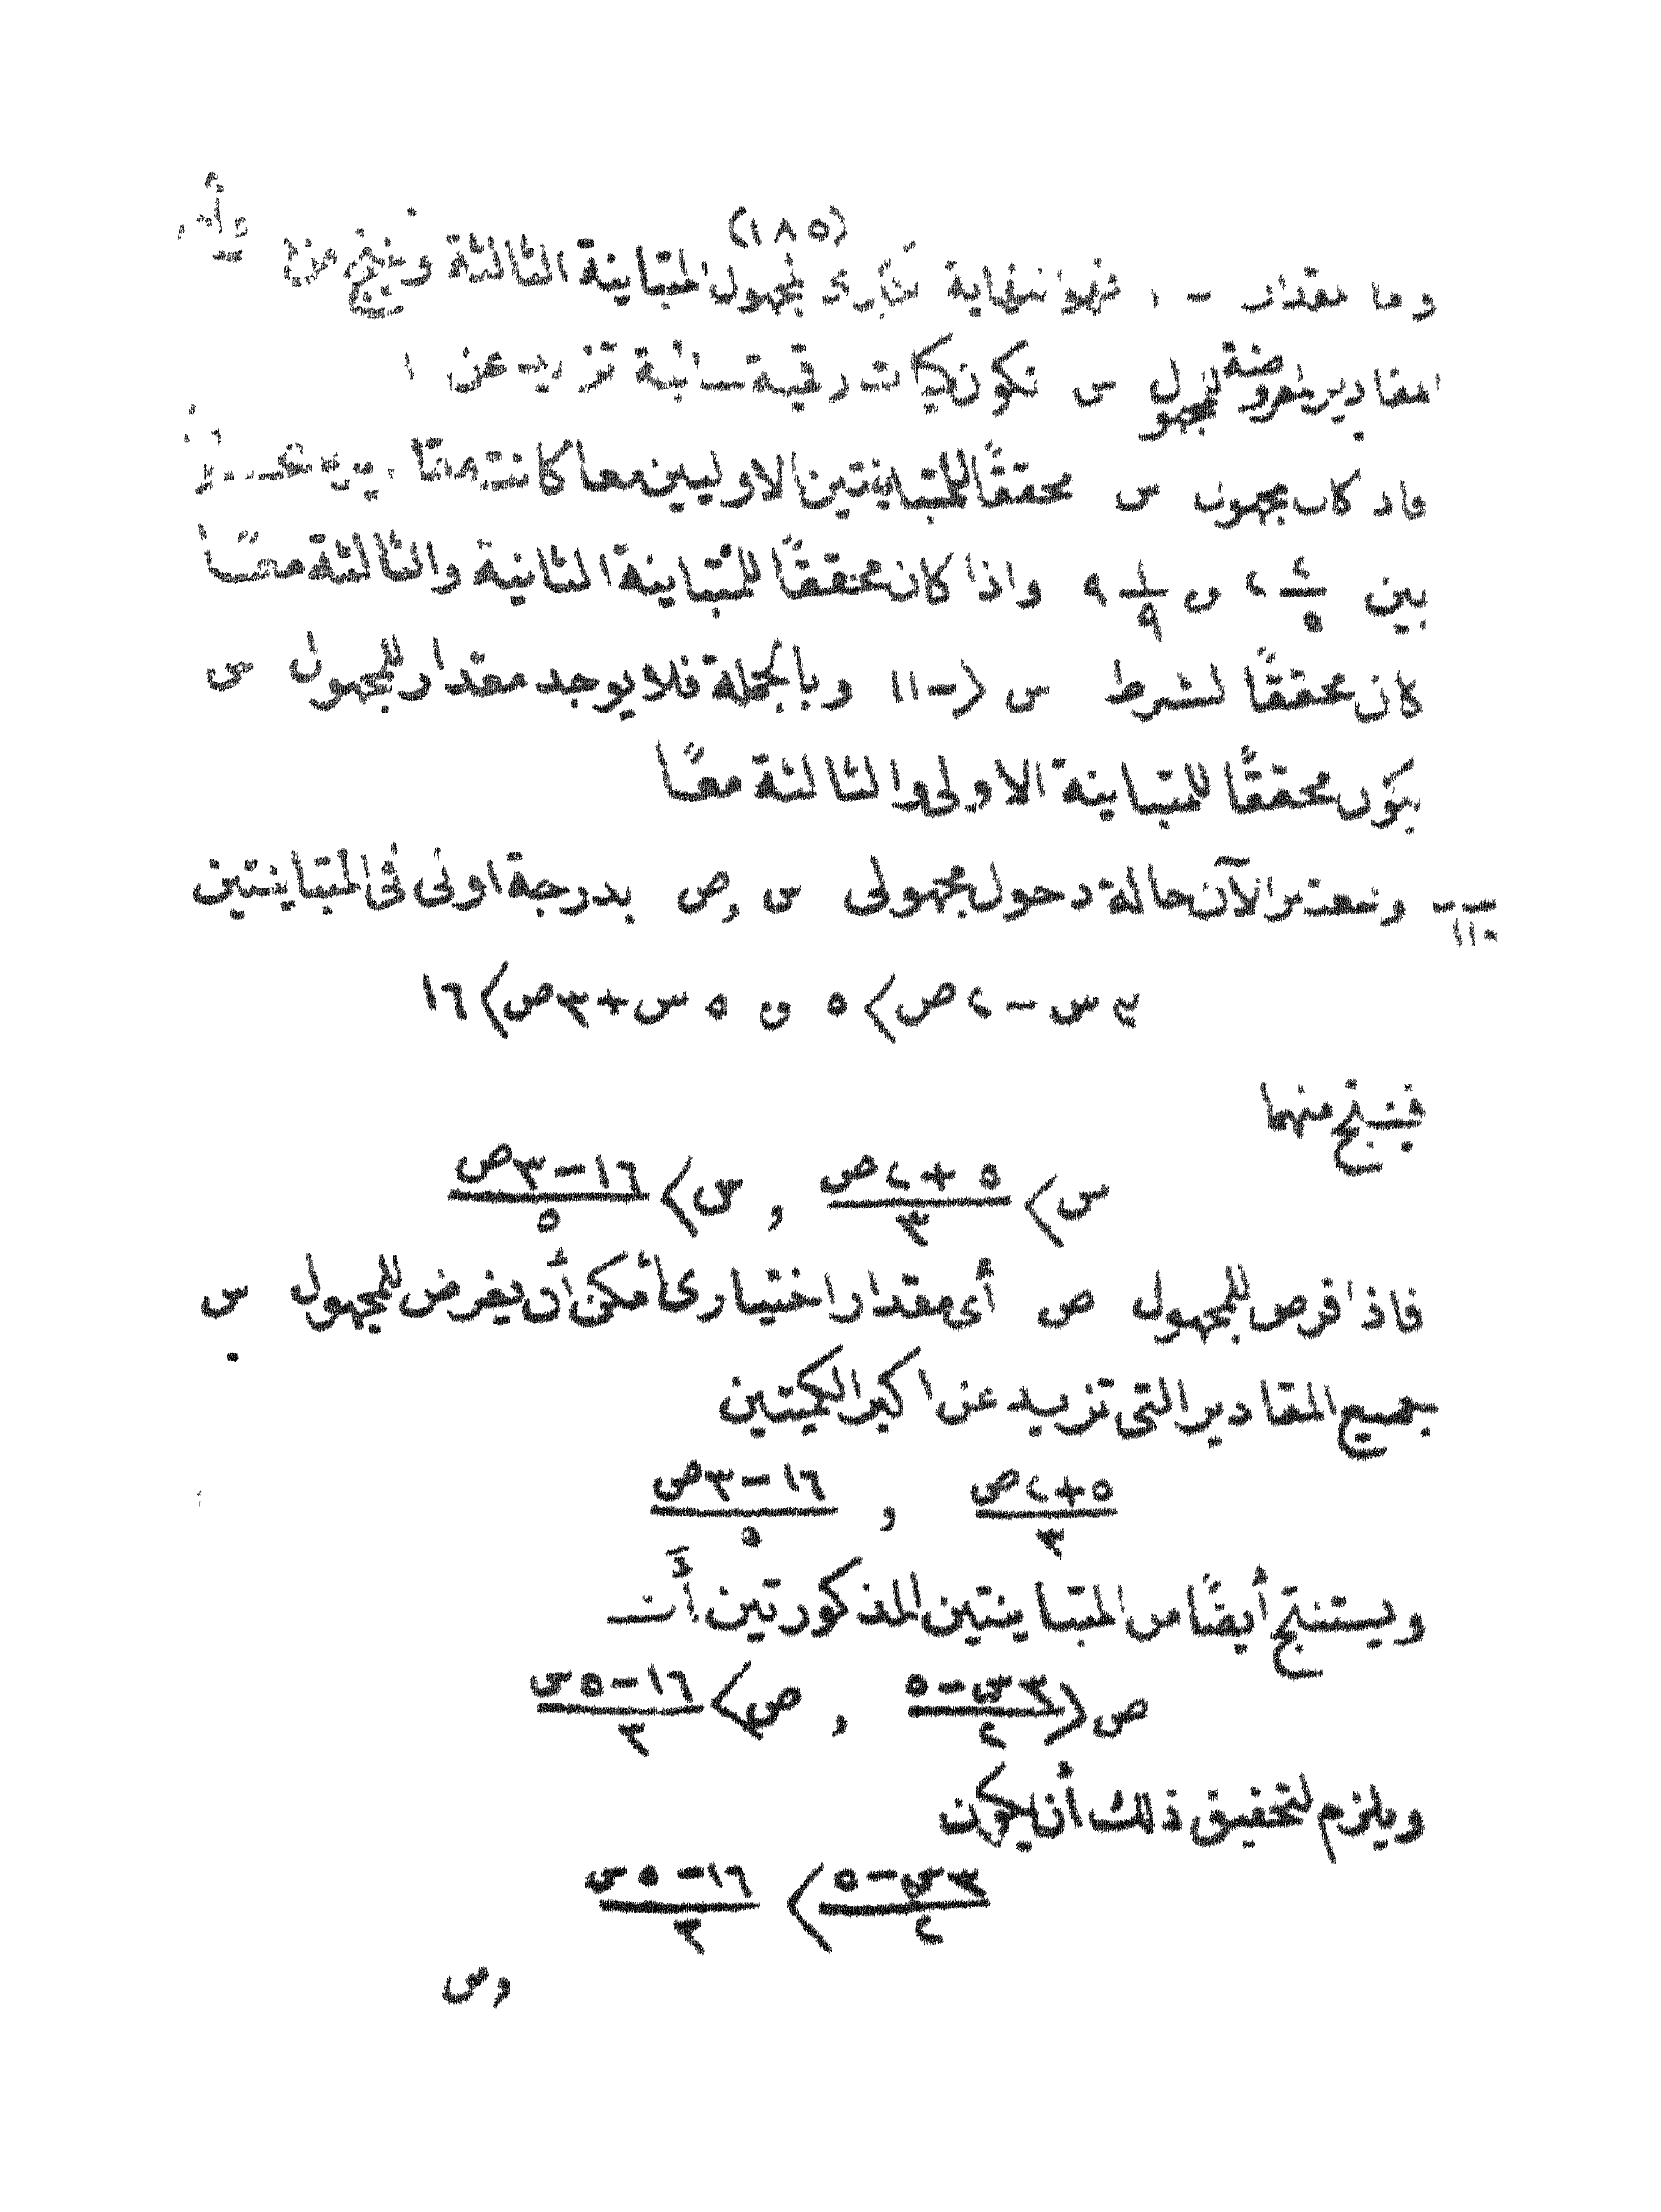 (١٨٥)
وما مقدار - ١ فهو نهاية كبرى لمجهول المتباينة الثالثة وينتج من
المقادير المفروضة للمجهول س تكون كميات رقمية سالبة تزيد عن ١
فاذا كان مجهول س محققًا للمتباينتين الاوليين معا كانت
بين ٤/٥ ٢ و ١/٩ ٩ واذا كان محققًا للمتباينة الثانية والثالثة معًا
كان محققًا لشرط س ⟨ - ١١ وبالجملة فلا يوجد مقدار للمجهول س
يكون محققًا للمتباينة الاولى والثالثة معًا
١١٠ ونعتبر الآن حالة دخول مجهولى س , ص بدرجة اولى فى المتباينتين
٣ س - ٢ ص ⟩ ٥ و ٥ س + ٣ ص ⟩ ١٦
فينتج منهما
س ⟩ (٥ + ٢ ص)/٣ , س ⟩ (١٦ - ٣ ص)/٥
فاذا فرض للمجهول ص أى مقدار اختيارى أمكن أن يفرض للمجهول س
جميع المقادير التى تزيد عن اكبر الكميتين
(٥ + ٢ ص)/٣ , (١٦ - ٣ ص)/٥
ويستنتج أيضًا من المتباينتين المذكورتين أن
ص ⟨ (٣ س - ٥)/٢ , ص ⟩ (١٦ - ٥ س)/٣
ويلزم لتحقيق ذلك أن يكون
(٣ س - ٥)/٢ ⟩ (١٦ - ٥ س)/٣
ومن